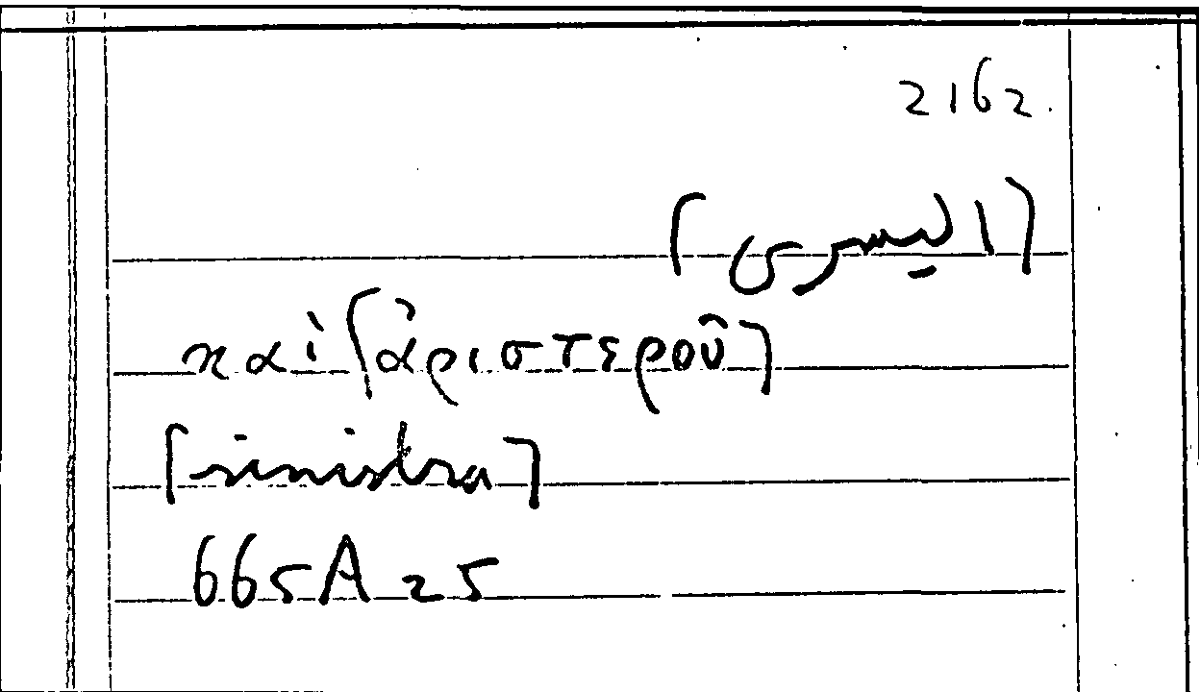 2162.
[اليسرى]
καὶ [ἀριστεροῦ]
[sinistra]
665A25